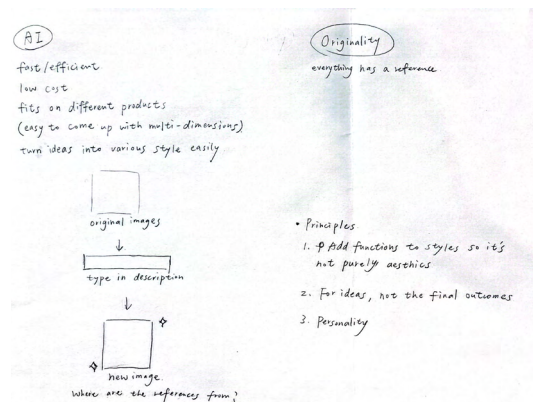 AI
fast/efficient
low cost
fits on different products
(easy to come up with multi-dimensions)
turn ideas into various style easily
original images
type in description
new image.
Where are the references from?
Originality
everything has a reference
• Principles
1. Add functions to styles so it's
not purely aesthics
2. For ideas, not the final outcomes
3. Personality